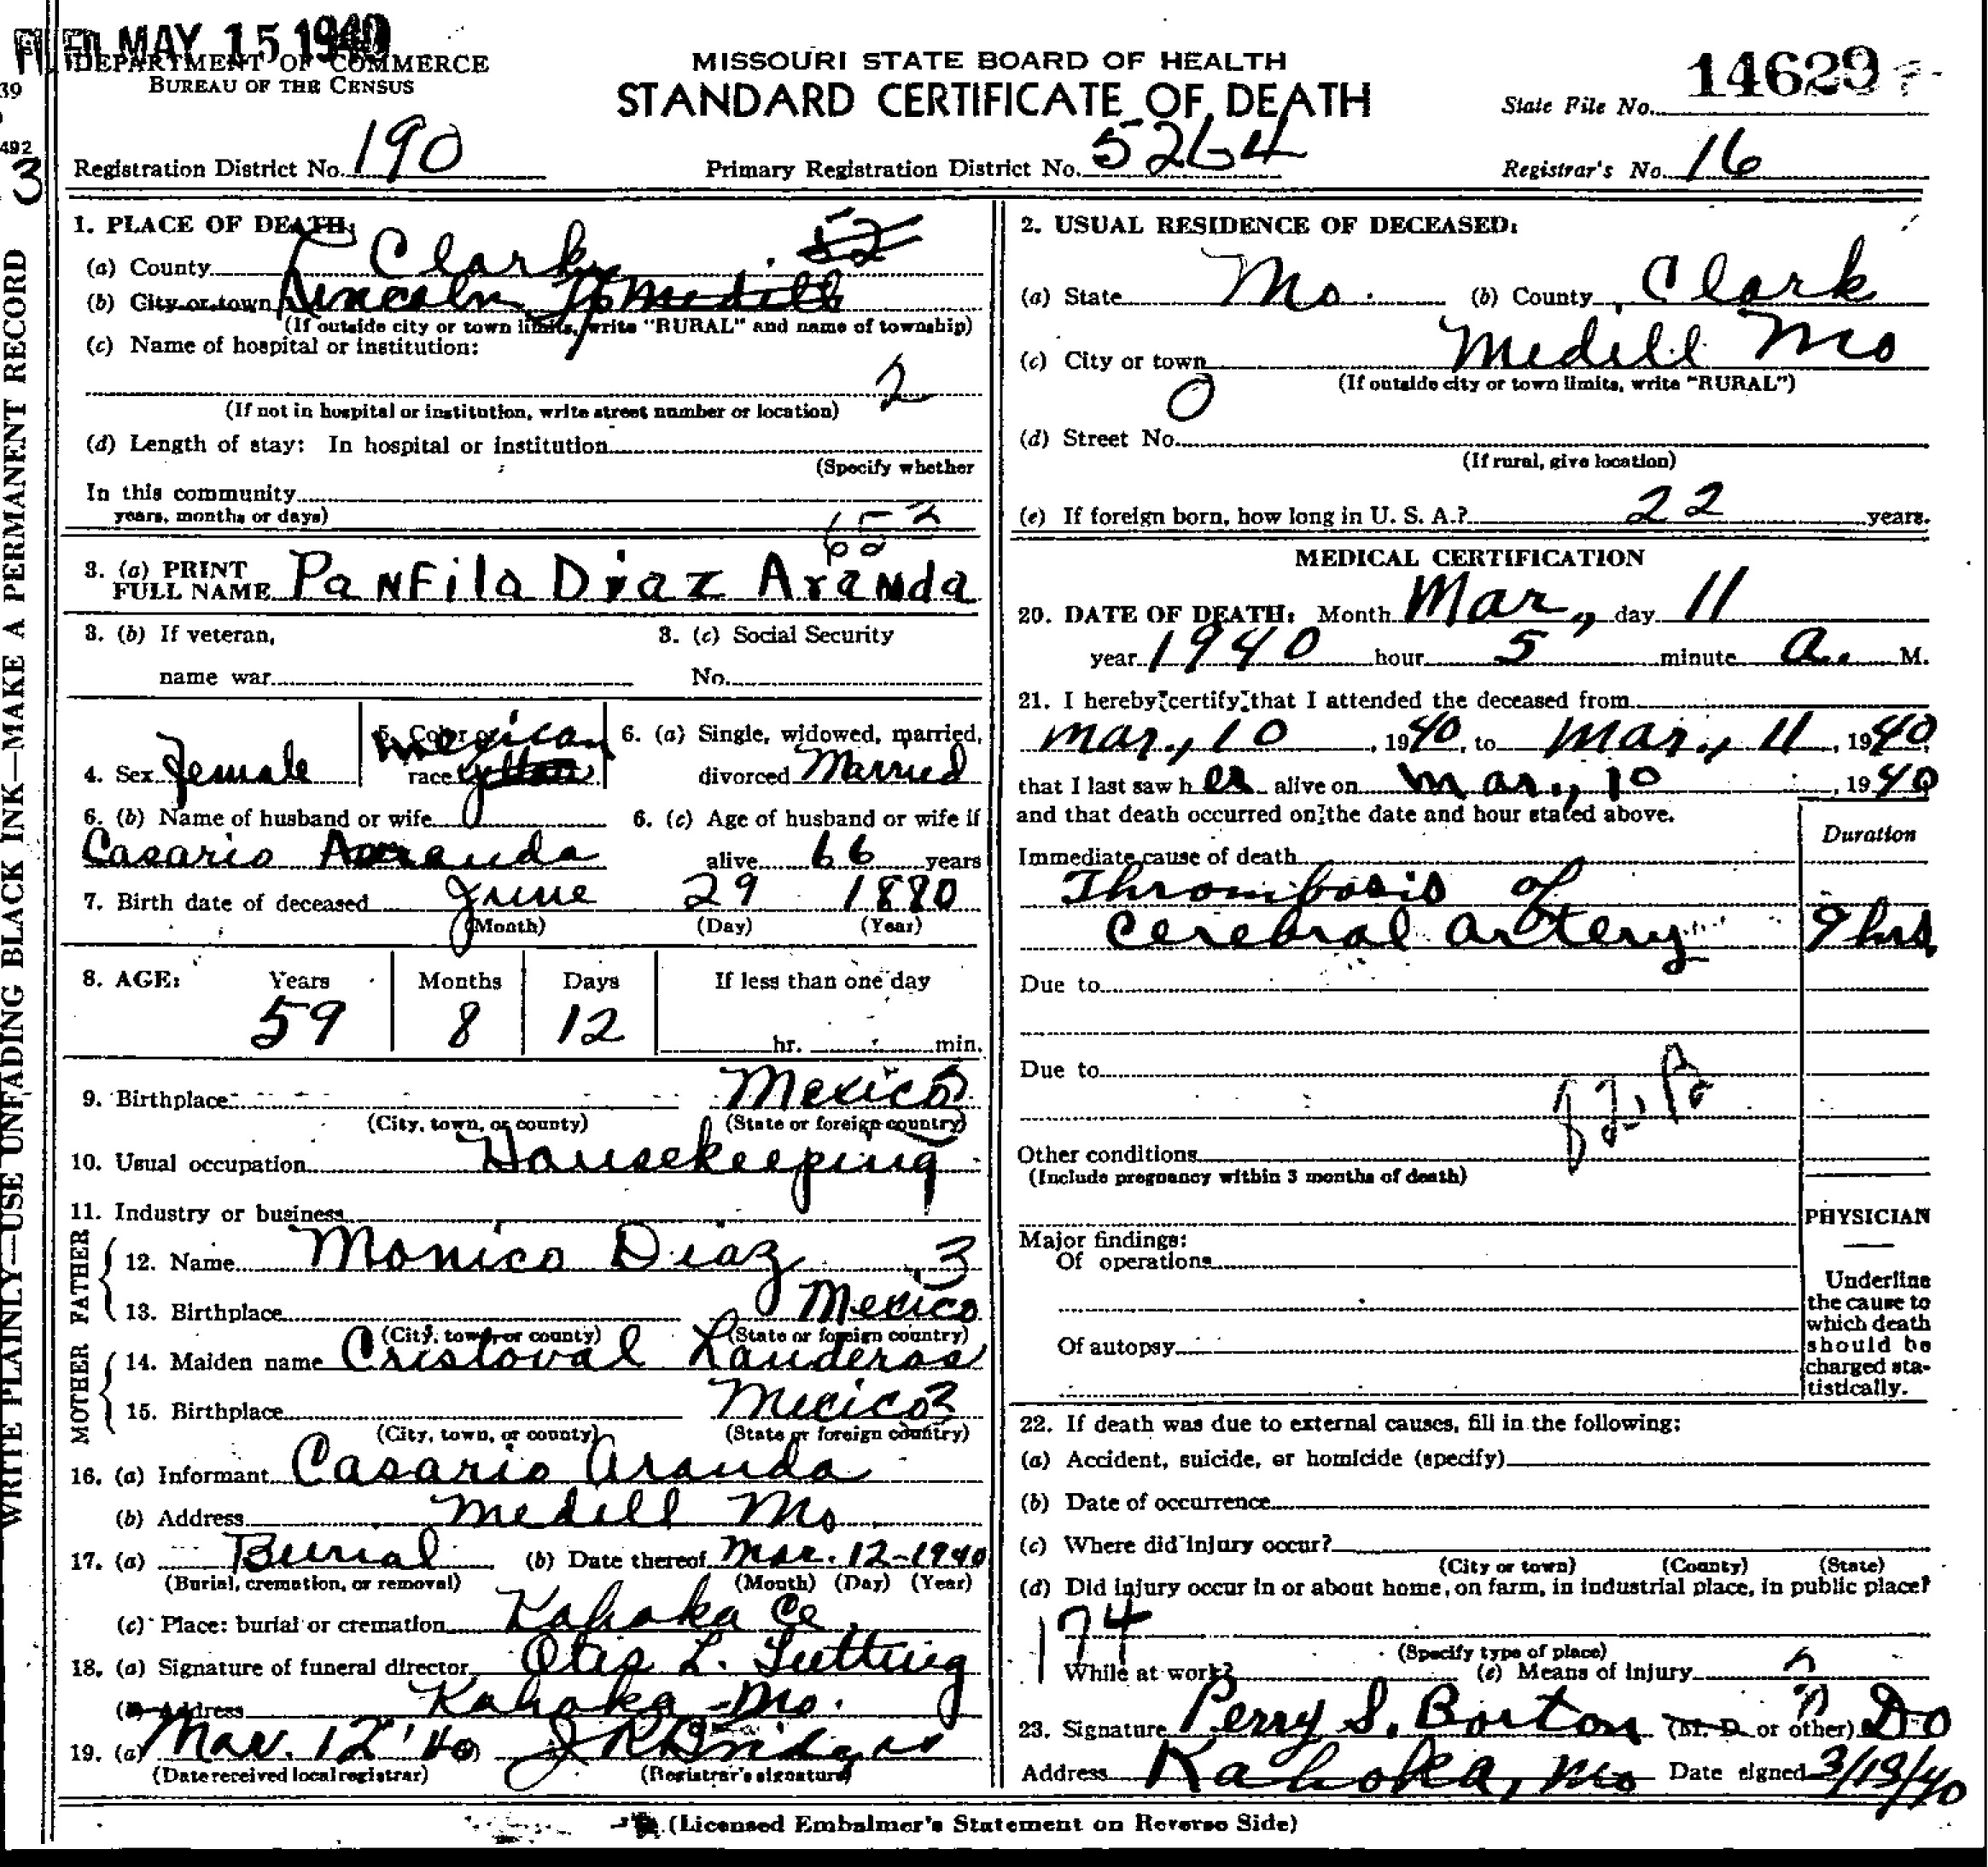 FILED MAY 15 1940
DEPARTMENT OF COMMERCE
BUREAU OF THE CENSUS
MISSOURI STATE BOARD OF HEALTH
STANDARD CERTIFICATE OF DEATH
State File No. 14629
39
492
3
Registration District No. 190
Primary Registration District No. 5264
Registrar's No. 16
WRITE PLAINLY—USE UNFADING BLACK INK—MAKE A PERMANENT RECORD
1. PLACE OF DEATH:
(a) County Clark 52
(b) City or town Lincoln Tp Medill
(If outside city or town limits, write "RURAL" and name of township)
(c) Name of hospital or institution:
2
(If not in hospital or institution, write street number or location)
(d) Length of stay: In hospital or institution
(Specify whether
In this community
years, months or days)
2. USUAL RESIDENCE OF DECEASED:
(a) State Mo. (b) County Clark
(c) City or town Medill Mo
(If outside city or town limits, write "RURAL")
0
(d) Street No.
(If rural, give location)
(e) If foreign born, how long in U. S. A.? 22 years.
3. (a) PRINT FULL NAME Panfila Diaz Aranda
3. (b) If veteran,
name war
3. (c) Social Security
No.
4. Sex Female
5. Color or race Mexican
6. (a) Single, widowed, married,
divorced Married
6. (b) Name of husband or wife
Casario Aranda
6. (c) Age of husband or wife if
alive 66 years
7. Birth date of deceased June 29 1880
(Month) (Day) (Year)
8. AGE: Years Months Days If less than one day
59 8 12
hr. min.
9. Birthplace Mexico
(City, town, or county) (State or foreign country)
10. Usual occupation Housekeeping
11. Industry or business
FATHER
12. Name Monico Diaz 3
13. Birthplace Mexico
(City, town, or county) (State or foreign country)
MOTHER
14. Maiden name Cristoval Landeras
15. Birthplace Mexico
(City, town, or county) (State or foreign country)
16. (a) Informant Casario Aranda
(b) Address Medill Mo
17. (a) Burial (b) Date thereof Mar. 12-1940
(Burial, cremation, or removal) (Month) (Day) (Year)
(c) Place: burial or cremation Kahoka Ce
18. (a) Signature of funeral director Otis L.
(b) Address Kahoka Mo.
19. (a) Mar. 12 '40 J R Bridges
(Date received local registrar) (Registrar's signature)
MEDICAL CERTIFICATION
20. DATE OF DEATH: Month Mar., day 11
year 1940 hour 5 minute a. M.
21. I hereby certify that I attended the deceased from
Mar., 10, 1940, to Mar., 11, 1940
that I last saw her alive on Mar., 10, 1940
and that death occurred on the date and hour stated above.
Duration
Immediate cause of death
Thrombosis of
Cerebral artery 9 hrs
Due to
Due to
Other conditions
(Include pregnancy within 3 months of death)
PHYSICIAN
Major findings:
Of operations
Of autopsy
Underline
the cause to
which death
should be
charged sta-
tistically.
22. If death was due to external causes, fill in the following:
(a) Accident, suicide, or homicide (specify)
(b) Date of occurrence
(c) Where did injury occur?
(City or town) (County) (State)
(d) Did injury occur in or about home, on farm, in industrial place, in public place?
174
(Specify type of place)
While at work? (e) Means of injury
23. Signature Perry S. Borton (M. D. or other) DO
Address Kahoka, Mo Date signed 3/13/40
(Licensed Embalmer's Statement on Reverse Side)